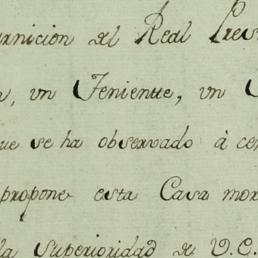 rnicion del Real Pres
n, vn Teniente, vn
ue se ha observado à cer
propone esta Casa mor
la Superioridad de V.E.